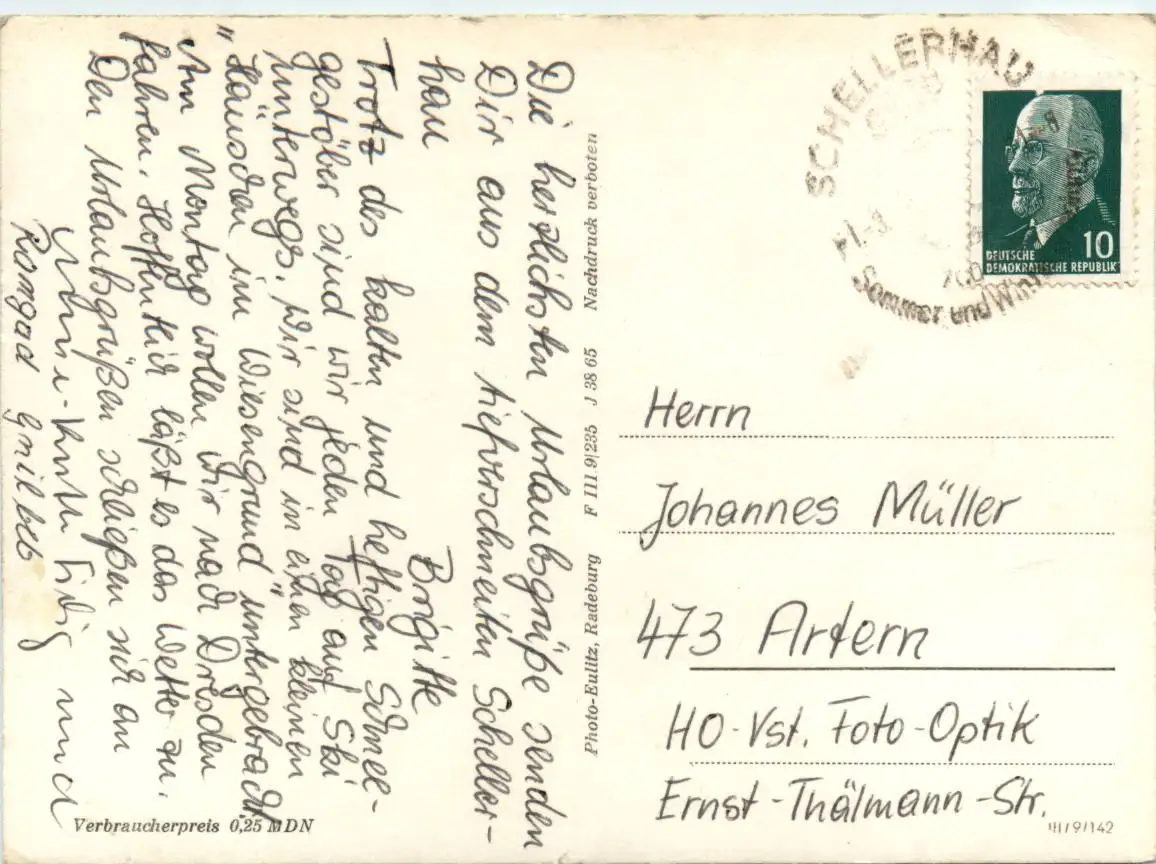 Die herzlichsten Urlaubsgrüße senden
Dir aus dem tiefverschneiten Scheller-
hau
Brigitte
Trotz des kalten und heftigen Schnee-
gestöber sind wir jeden Tag auf Ski
unterwegs. Wir sind in einen kleinen
"Häuschen im Wiesengrund" untergebracht
Am Montag wollen wir nach Dresden
fahren. Hoffentlich läßt es das Wetter zu.
Den Urlaubsgrüßen schließen sich an
und
Photo-Eulitz, Radeburg F III 9/235 J 38 65 Nachdruck verboten
Verbraucherpreis 0,25 MDN
SCHELLERHAU
Sommer und
10
DEUTSCHE
DEMOKRATISCHE REPUBLIK
Herrn
Johannes Müller
473 Artern
HO-Vst. Foto-Optik
Ernst-Thälmann-Str.
III/9/142